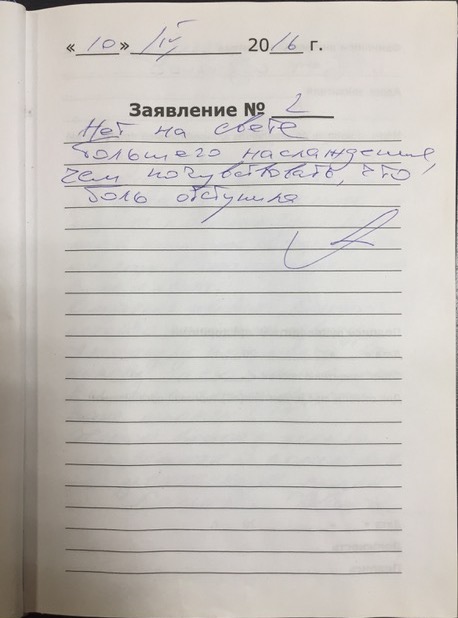 «10» IV 2016 г.
Заявление № 2
Нет на свете
большего наслаждения,
чем почувствовать, что
боль отступила